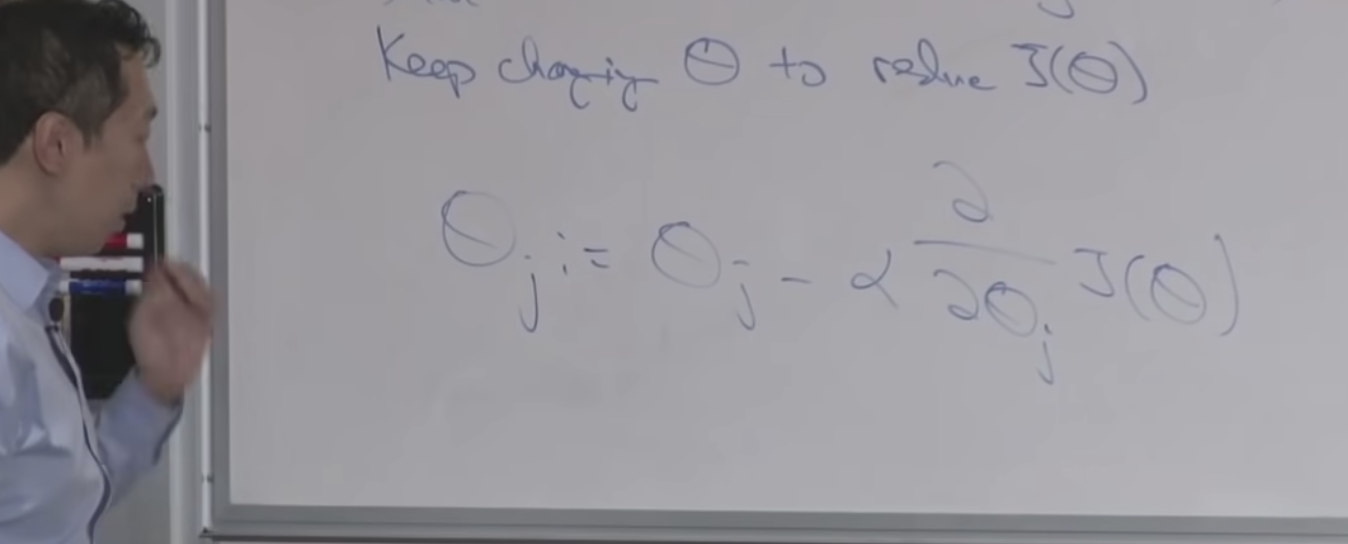 Keep changing θ to reduce J(θ)
θj := θj - α ∂/∂θj J(θ)